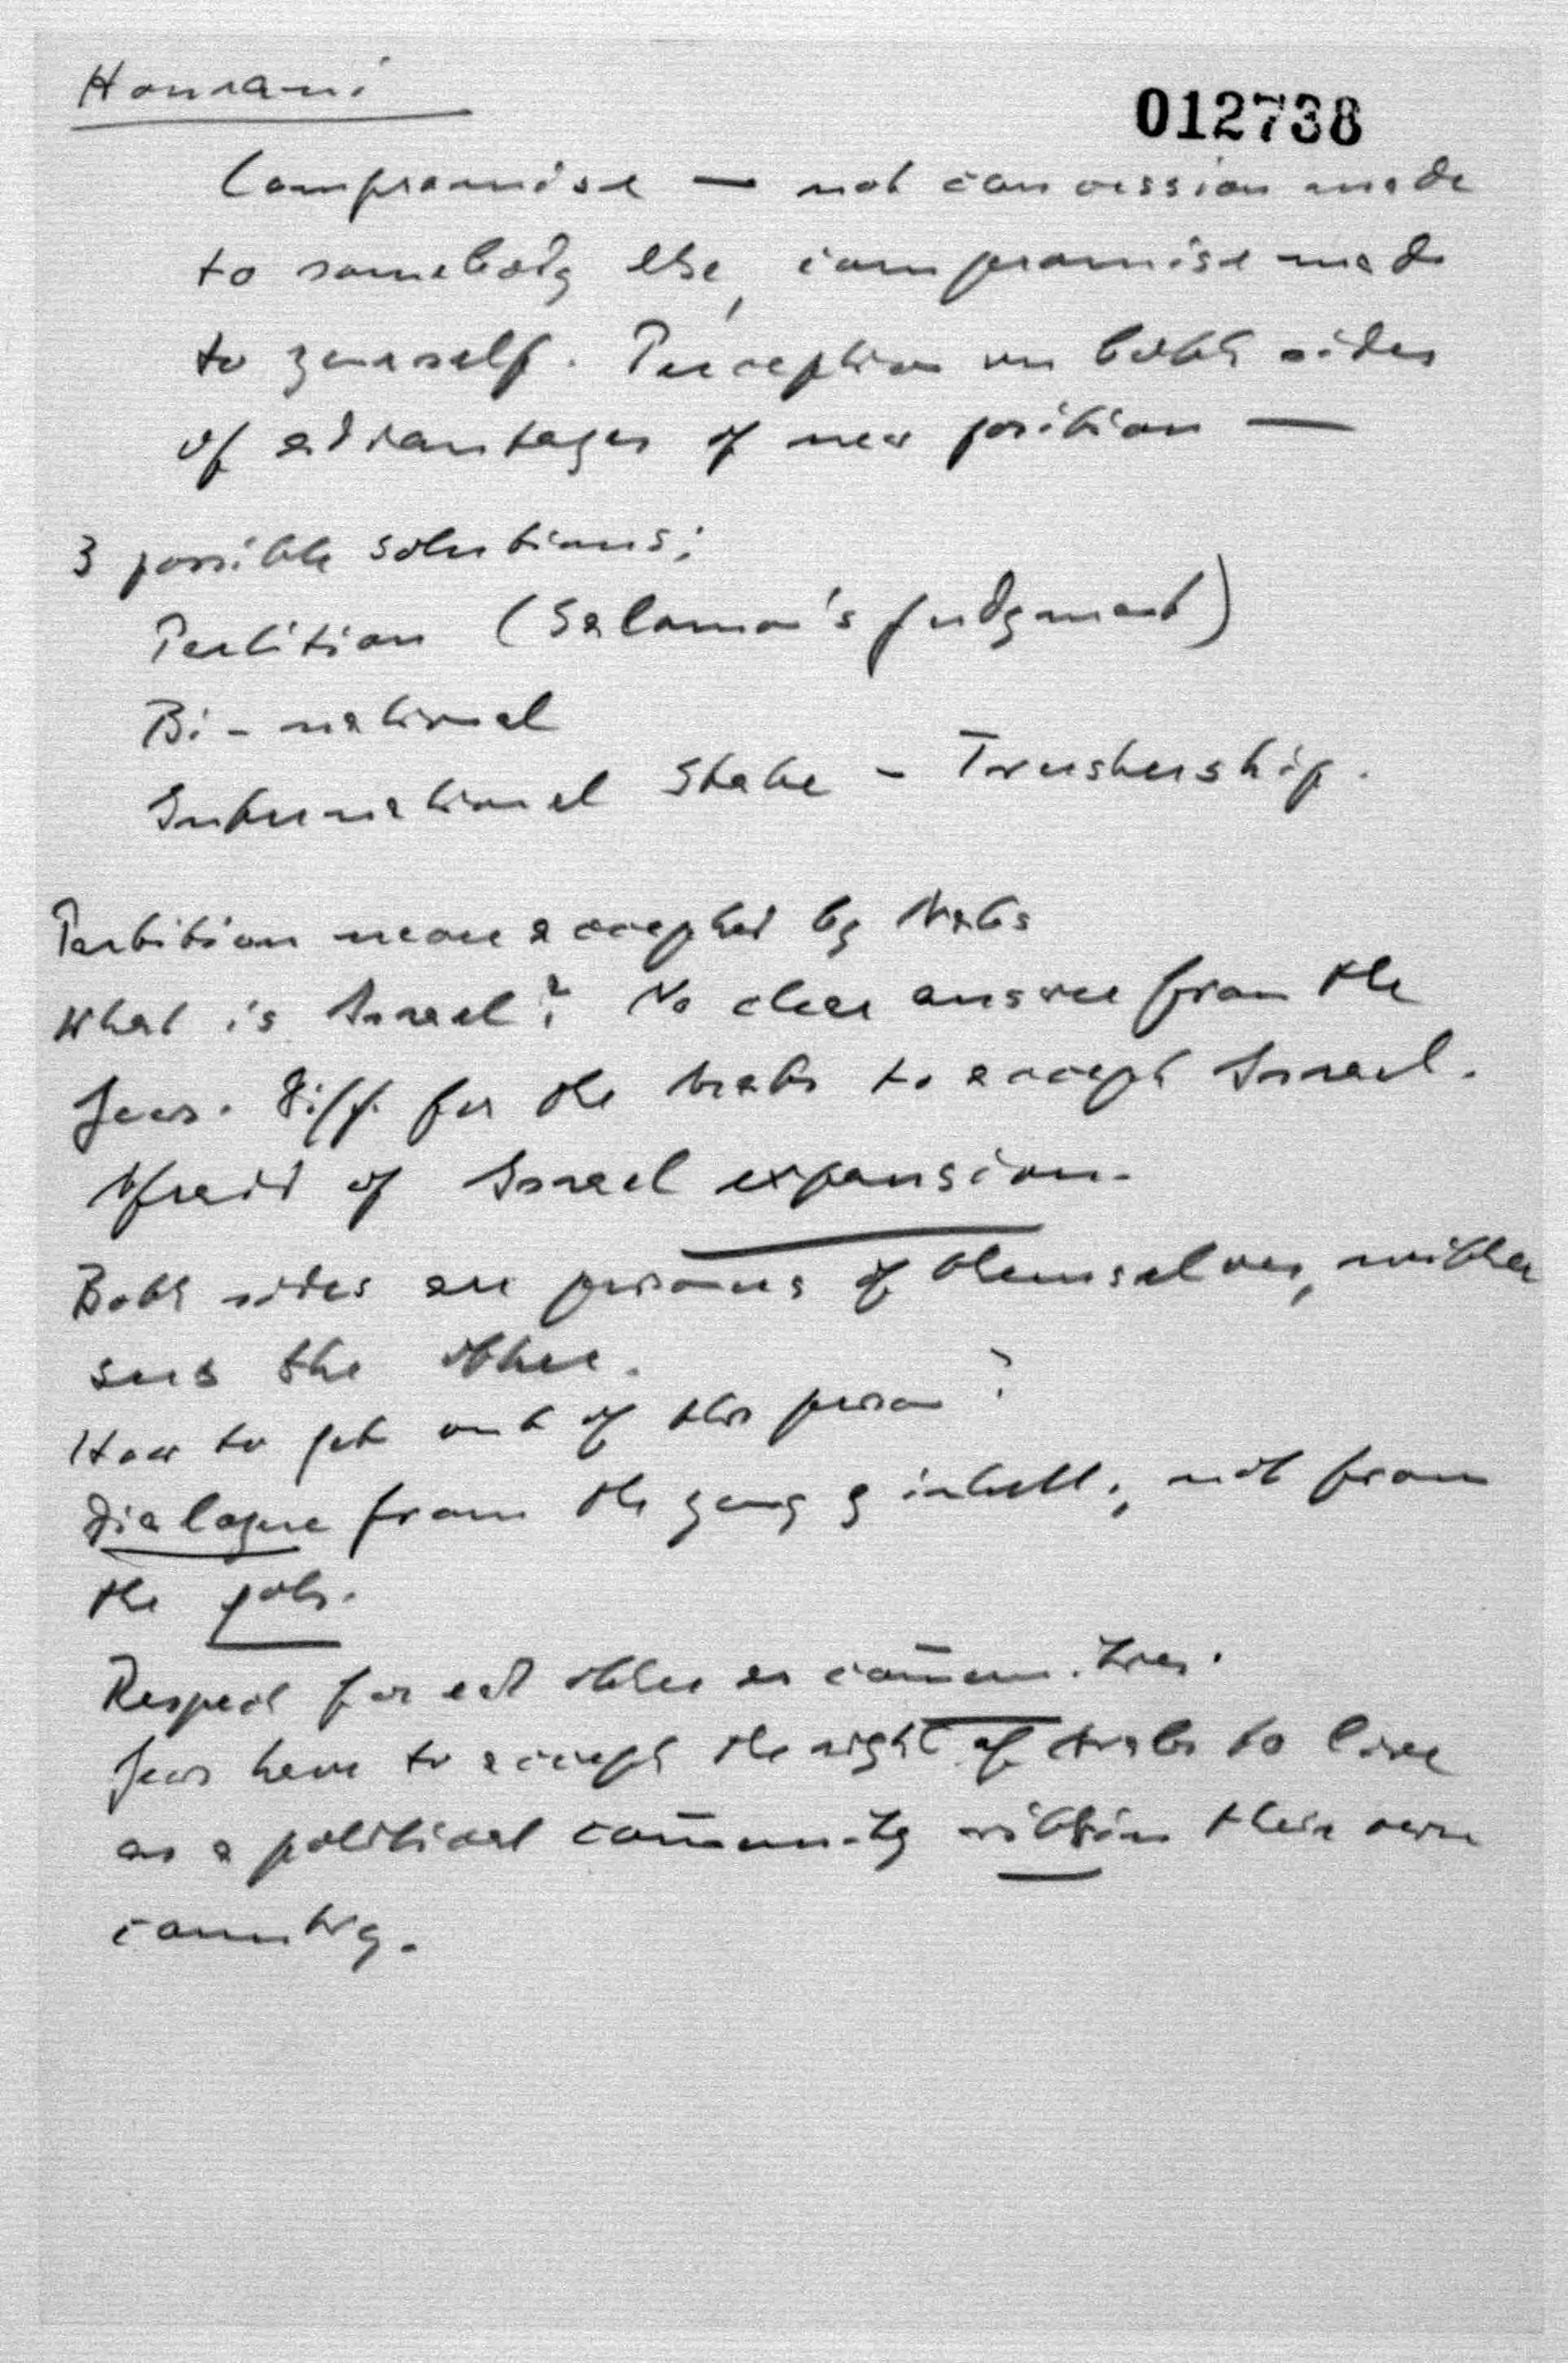 Hourani
012738
Compromise — not concession made
to somebody else, compromise made
to yourself. Perception on both sides
of advantages of new position —
3 possible solutions:
Partition (Salomon's judgment)
Bi-national
International State - Trusteeship.
Partition never accepted by Arabs
What is Israel? No clear answer from the
Jews. Diff. for the Arabs to accept Israel.
Afraid of Israel expansion.
Both sides are prisoners of themselves, neither
sees the other.
How to get out of this prison?
Dialogue from the young & intell., not from
the pols.
Respect for each other as communities.
Jews have to accept the right of Arabs to live
as a political community within their own
country.